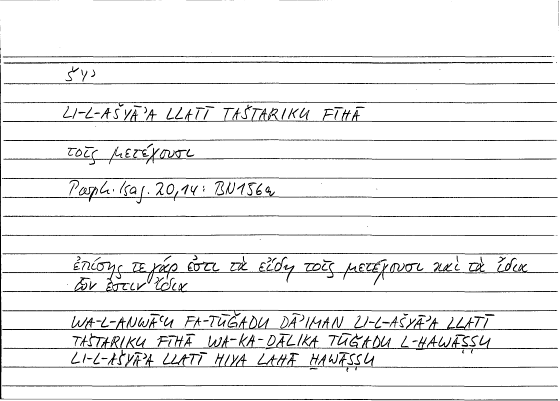 šyʾ
LI-L-AŠYĀʾA LLATĪ TAŠTARIKU FĪHĀ
τοῖς μετέχουσι
Porph. Isag. 20,14: BN156a
ἐπίσης τε γάρ ἐστι τὰ εἴδη τοῖς μετέχουσι καὶ τὰ ἴδια
ὧν ἐστιν ἴδια
WA-L-ANWĀʿU FA-TŪǦADU DĀʾIMAN LI-L-AŠYĀʾA LLATĪ
TAŠTARIKU FĪHĀ WA-KA-ḎĀLIKA TŪǦADU L-ḪAWĀṢṢU
LI-L-AŠYĀʾA LLATĪ HIYA LAHĀ ḪAWĀṢṢU